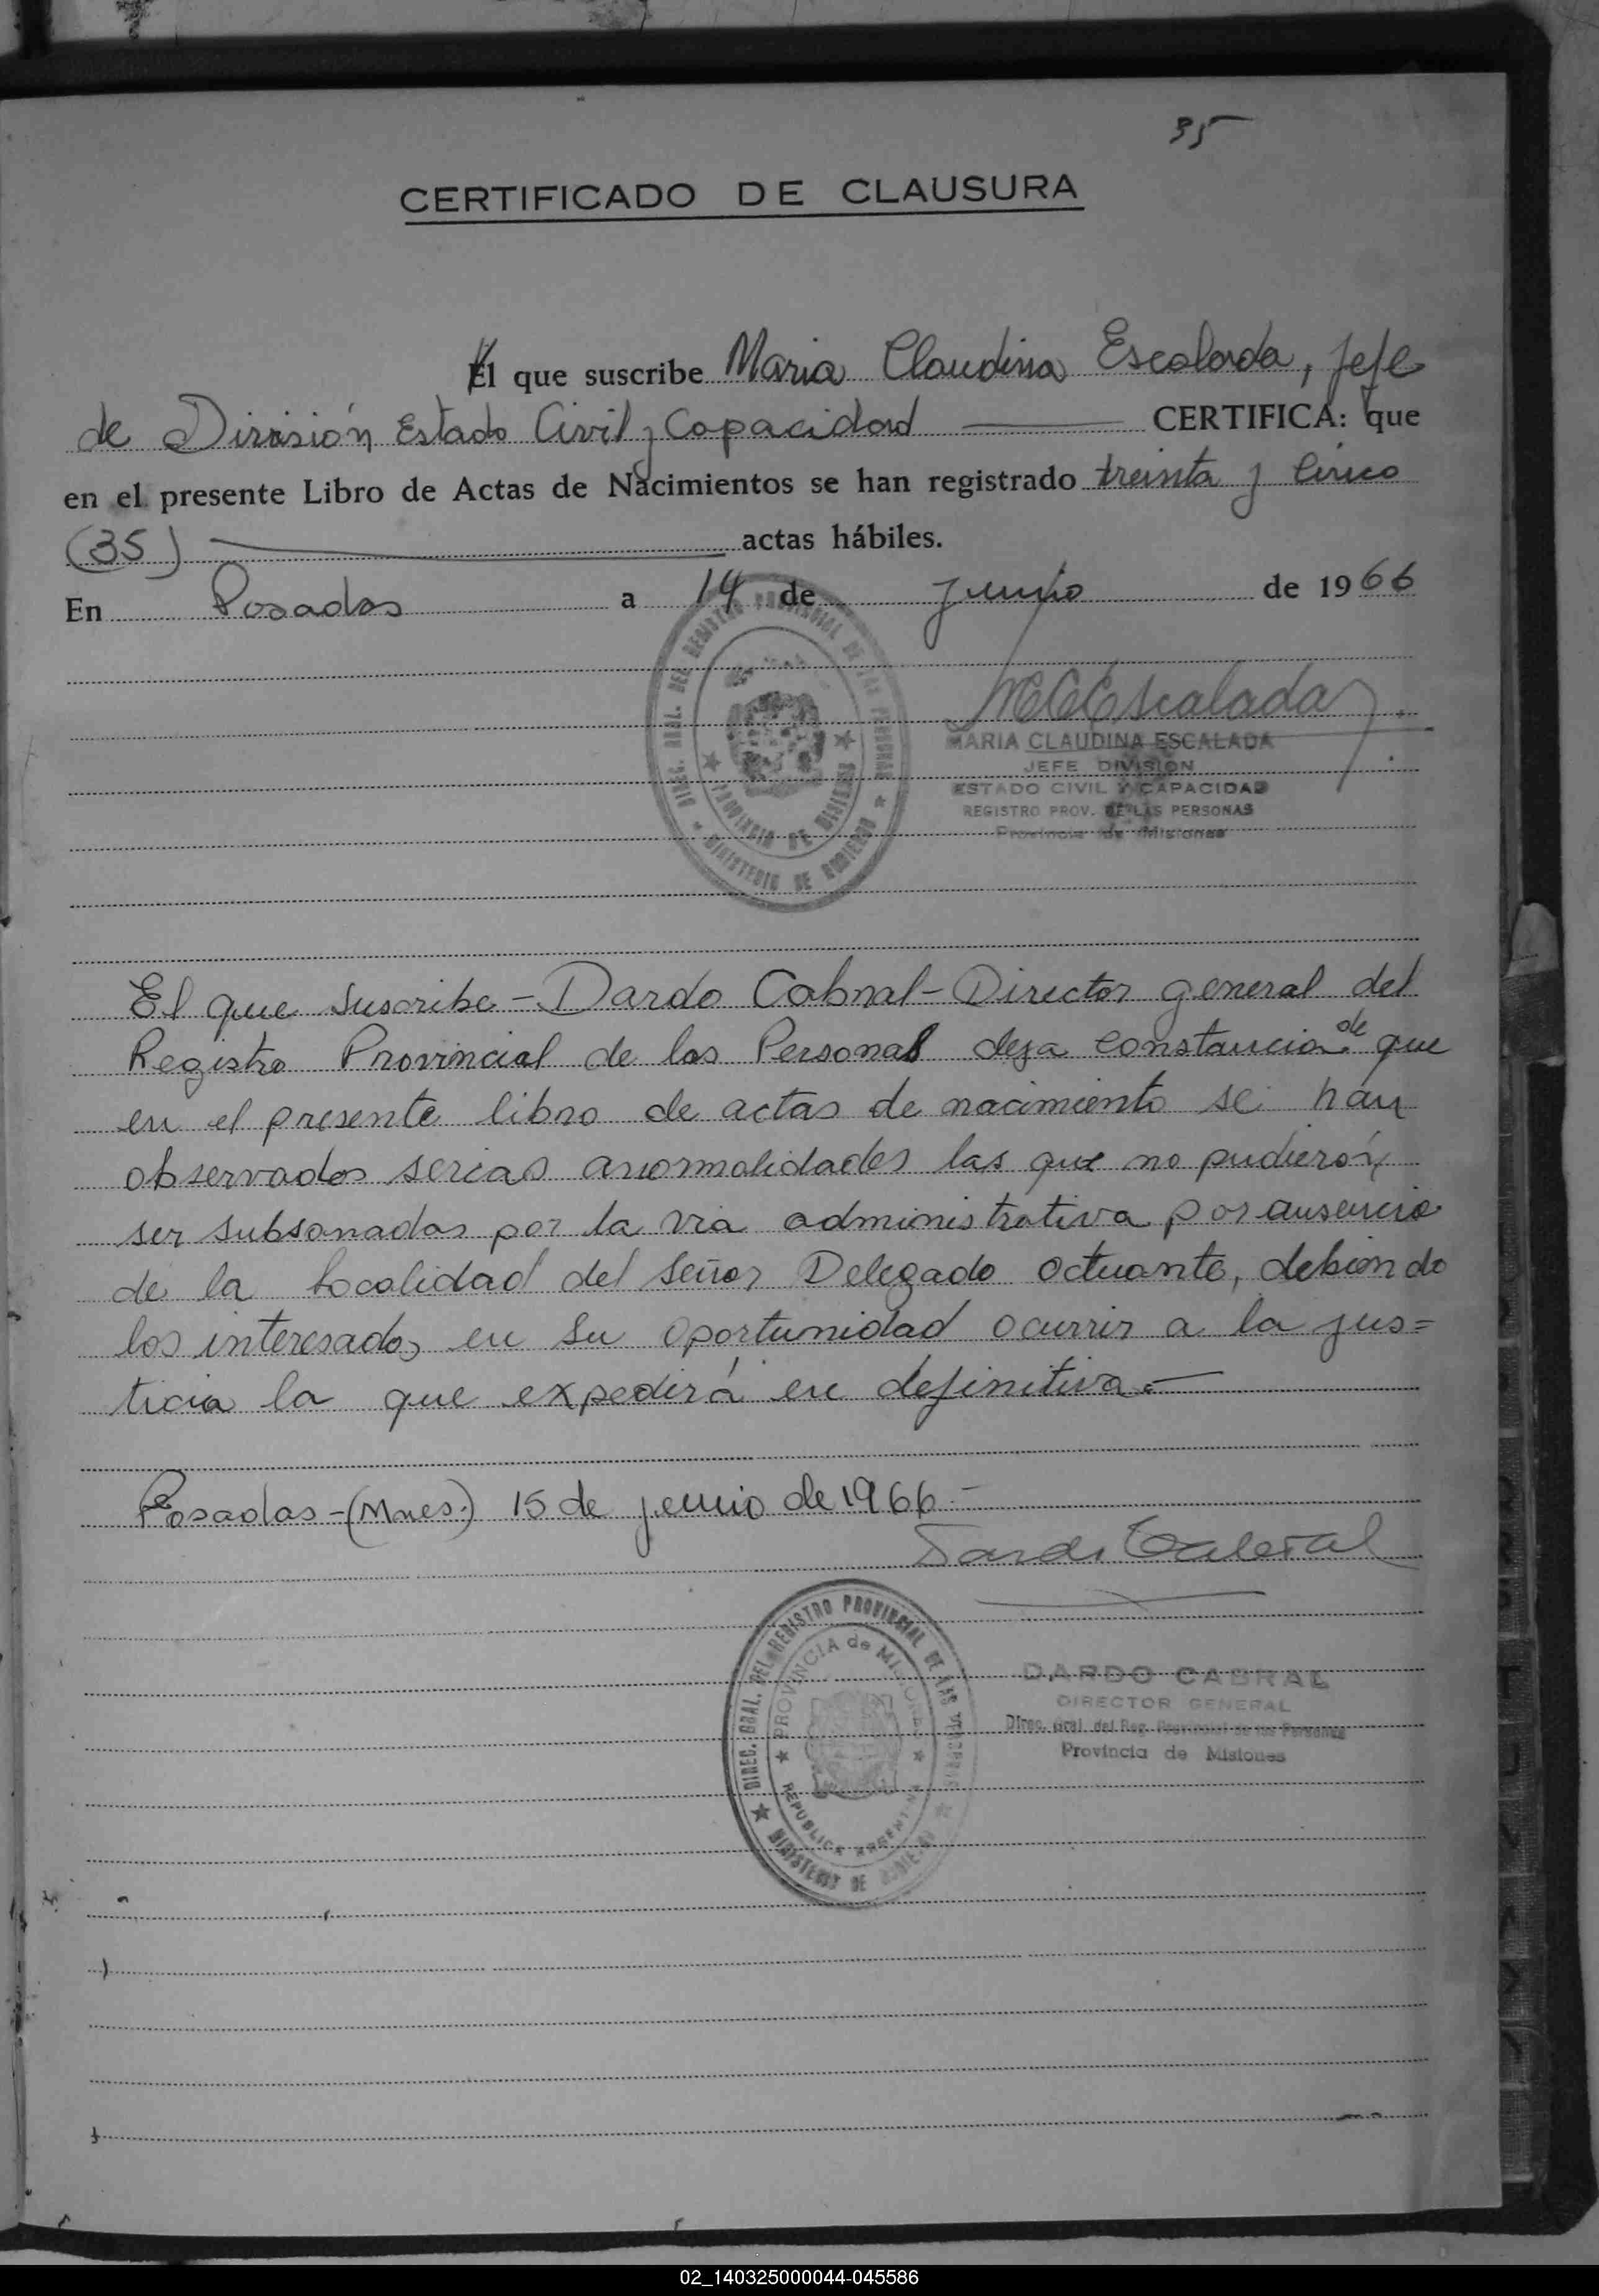 35
CERTIFICADO DE CLAUSURA
El que suscribe Maria Claudina Escalada, Jefe
de División Estado Civil y Capacidad CERTIFICA: que
en el presente Libro de Actas de Nacimientos se han registrado treinta y cinco
(35) actas hábiles.
En Posadas a 14 de junio de 1966
DIREC. GRAL. DEL REGISTRO PROVINCIAL DE LAS PERSONAS
PROVINCIA DE MISIONES
MINISTERIO DE GOBIERNO
MCEscalada
MARIA CLAUDINA ESCALADA
JEFE DIVISION
ESTADO CIVIL Y CAPACIDAD
REGISTRO PROV. DE LAS PERSONAS
Provincia de Misiones
El que suscribe - Dardo Cabral - Director general del
Registro Provincial de las Personas deja constancia de que
en el presente libro de actas de nacimiento se han
observados serias anormalidades las que no pudierón
ser subsanadas por la via administrativa por ausencia
de la Localidad del señor Delegado actuante, debiendo
los interesados en su oportunidad ocurrir a la jus=
ticia la que expedirá en definitiva.-
Posadas - (Mnes.) 15 de junio de 1966.-
Dardo Cabral
DIREC. GRAL. DEL REGISTRO PROVINCIAL DE LAS PERSONAS
PROVINCIA de MISIONES
REPUBLICA ARGENTINA
MINISTERIO DE GOBIERNO
DARDO CABRAL
DIRECTOR GENERAL
Direc. Gral. del Reg. Provincial de las Personas
Provincia de Misiones
02_140325000044-045586